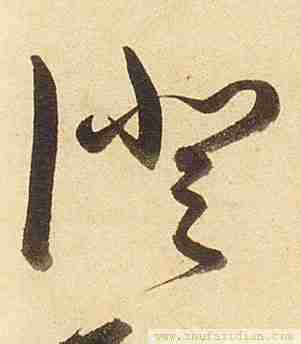 澄
www.shufazidian.com